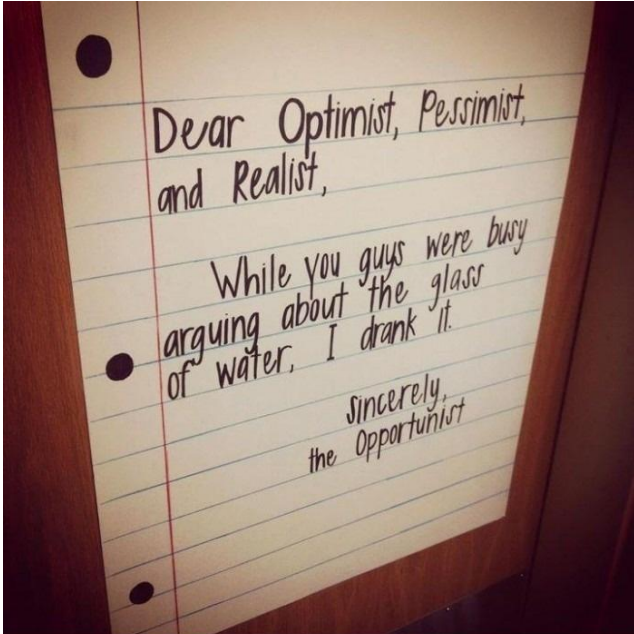 Dear Optimist, Pessimist,
and Realist,
While you guys were busy
arguing about the glass
of water, I drank it.
Sincerely,
the Opportunist